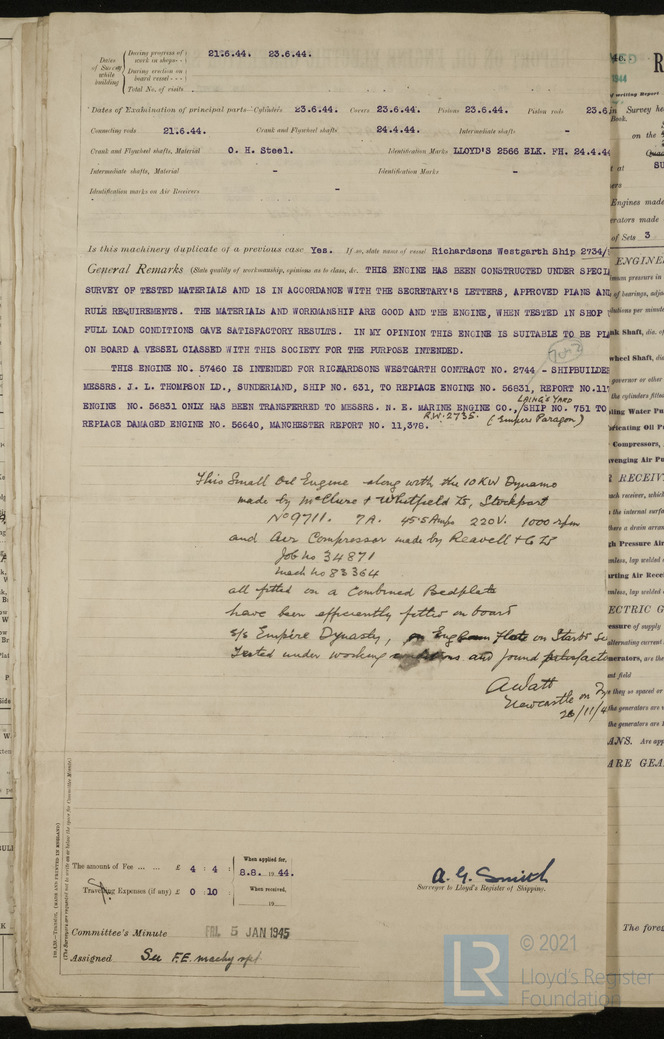 Dates of Survey while building
During progress of work in shops - - 21.6.44. 23.6.44.
During erection on board vessel - - -
Total No. of visits
Dates of Examination of principal parts—Cylinders 23.6.44. Covers 23.6.44. Pistons 23.6.44. Piston rods 23.6
Connecting rods 21.6.44. Crank and Flywheel shafts 24.4.44. Intermediate shafts -
Crank and Flywheel shafts, Material O. H. Steel. Identification Marks LLOYD'S 2566 ELK. FH. 24.4.44
Intermediate shafts, Material - Identification Marks -
Identification marks on Air Receivers -
Is this machinery duplicate of a previous case Yes. If so, state name of vessel Richardsons Westgarth Ship 2734/
General Remarks (State quality of workmanship, opinions as to class, &c. THIS ENGINE HAS BEEN CONSTRUCTED UNDER SPECIA
SURVEY OF TESTED MATERIALS AND IS IN ACCORDANCE WITH THE SECRETARY'S LETTERS, APPROVED PLANS AND
RULE REQUIREMENTS. THE MATERIALS AND WORKMANSHIP ARE GOOD AND THE ENGINE, WHEN TESTED IN SHOP
FULL LOAD CONDITIONS GAVE SATISFACTORY RESULTS. IN MY OPINION THIS ENGINE IS SUITABLE TO BE PL
ON BOARD A VESSEL CLASSED WITH THIS SOCIETY FOR THE PURPOSE INTENDED.
THIS ENGINE NO. 57460 IS INTENDED FOR RICHARDSONS WESTGARTH CONTRACT NO. 2744 - SHIPBUILDE
MESSRS. J. L. THOMPSON LD., SUNDERLAND, SHIP NO. 631, TO REPLACE ENGINE NO. 56831, REPORT NO.11
LAING'S YARD
ENGINE NO. 56831 ONLY HAS BEEN TRANSFERRED TO MESSRS. N. E. MARINE ENGINE CO., SHIP NO. 751 TO
R.W. 2735. (Empire Paragon)
REPLACE DAMAGED ENGINE NO. 56640, MANCHESTER REPORT NO. 11,378.
This Small Oil Engine along with the 10 KW Dynamo
made by McClure & Whitfield Ld, Stockport
No 9711. 7A. 45.5 Amps 220V. 1000 rpm
and Air Compressor made by Reavell & Co Ld
Job No 34871
Mach No 83364
all fitted on a Combined Bedplate
have been efficiently fitted on board
s/s Empire Dynasty, on Eng Room Flate on Starb Si
Tested under working conditions and found satisfacto
A Watt
Newcastle on Ty
26/11/4
The amount of Fee ... ... £ 4 : 4 : When applied for, 8.8. 1944.
Travelling Expenses (if any) £ 0 : 10 : When received, 19
A. G. Smith
Surveyor to Lloyd's Register of Shipping.
Committee's Minute FRI. 5 JAN 1945
Assigned See F.E. machy rpt
(The Surveyors are requested not to write on or below the space for Committee's Minute.)
© 2021
LR Lloyd's Register
Foundation